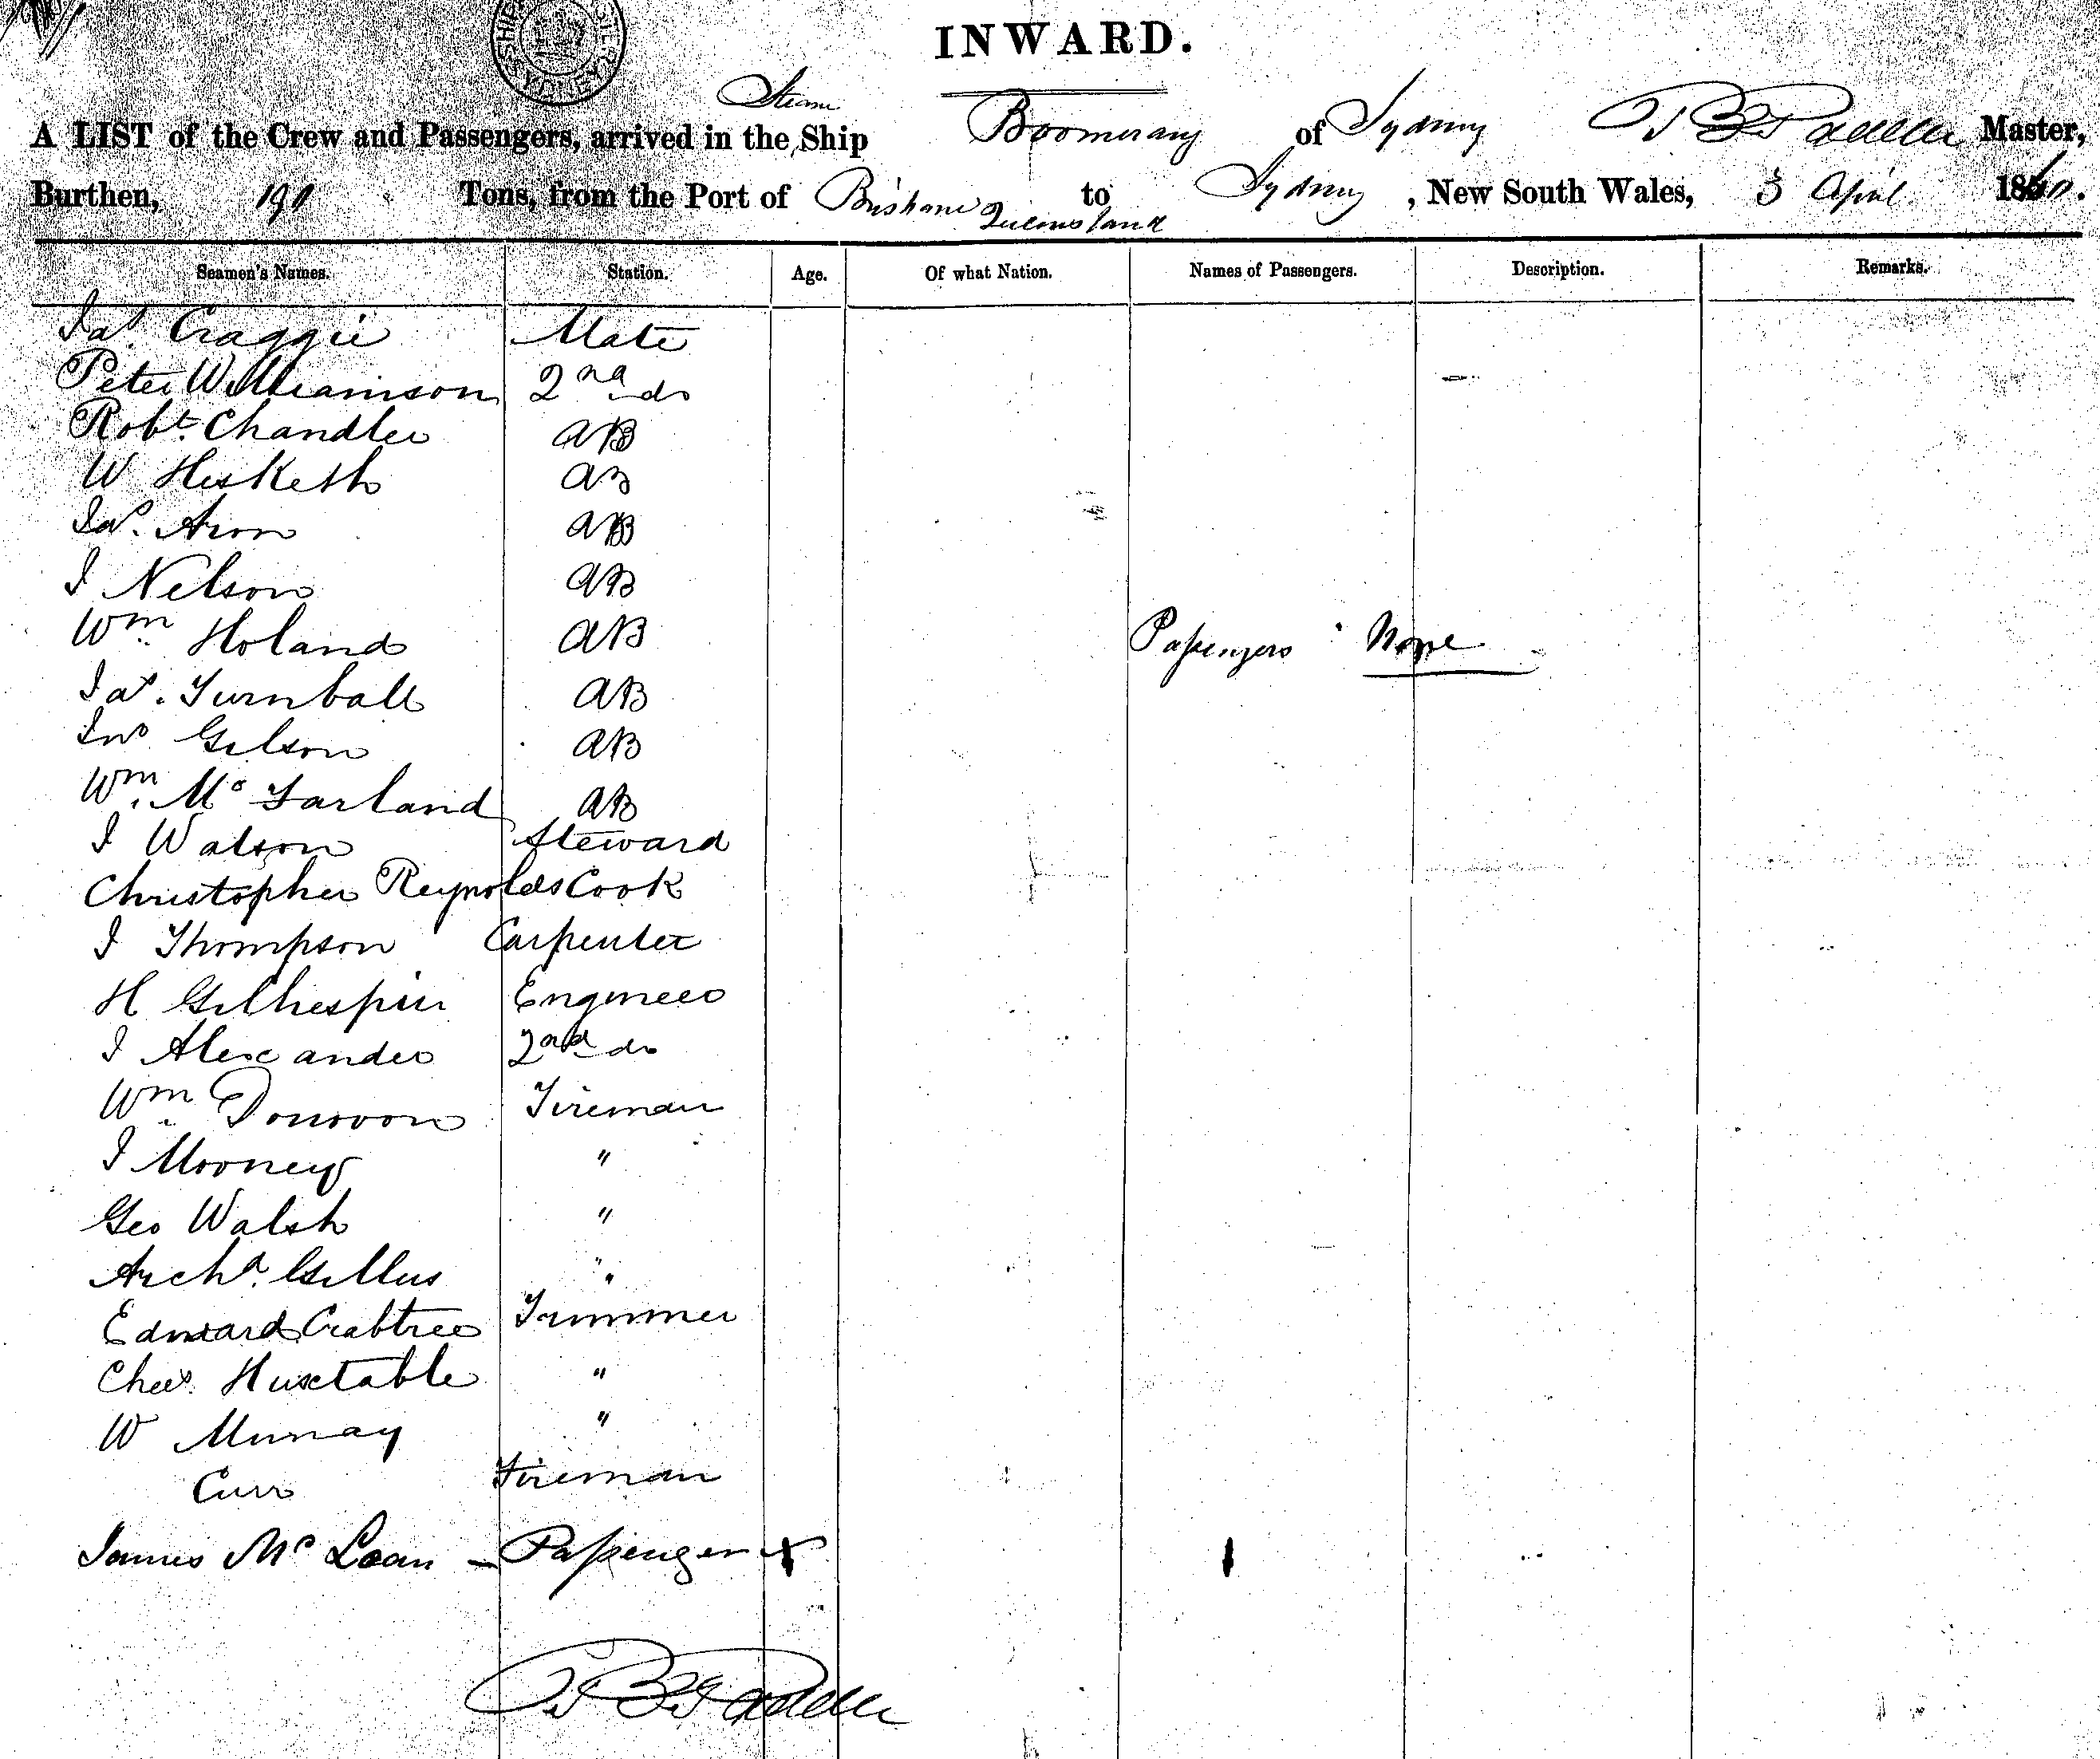 INWARD.
Steam
A LIST of the Crew and Passengers, arrived in the Ship Boomerang of Sydney Master,
Burthen, 190 Tons, from the Port of Brisbane Queensland to Sydney, New South Wales, 3 April 1860.
Seamen's Names. Station. Age. Of what Nation. Names of Passengers. Description. Remarks.
Jas. Craggie Mate
Peter Williamson 2nd do
Robt. Chandler AB
W Hesketh AB
Jas. Aron AB
J Nelson AB
Wm. Holand AB
Passengers None
Jas. Turnball AB
Jno Gelson AB
Wm. Mc Farland AB
J Watson Steward
Christopher Reynolds Cook
J Thompson Carpenter
H Gilhespie Engineer
J Alexander 2nd do
Wm. Donovon Fireman
J Mooney "
Geo Walsh "
Archd. Gillus "
Edward Crabtree Trimmer
Chas. Huxtable "
W Murray "
Curr Fireman
James Mc Lean - Passenger